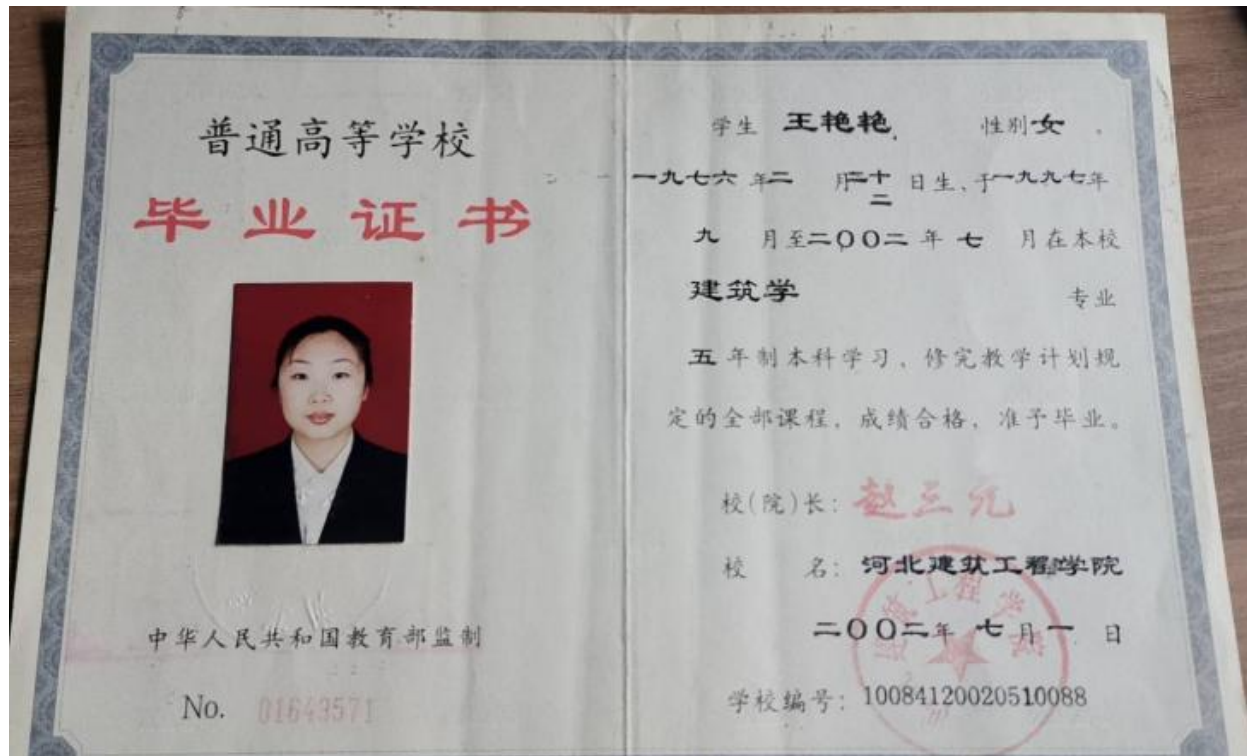 普通高等学校
毕业证书
中华人民共和国教育部监制
No. 01643571
学生 王艳艳, 性别女。
一九七六年二月二十二日生、于一九九七年
九月至二〇〇二年七月在本校
建筑学 专业
五年制本科学习、修完教学计划规
定的全部课程,成绩合格,准予毕业。
校(院)长:赵三元
校 名:河北建筑工程学院
二〇〇二年七月一日
学校编号:10084120020510088